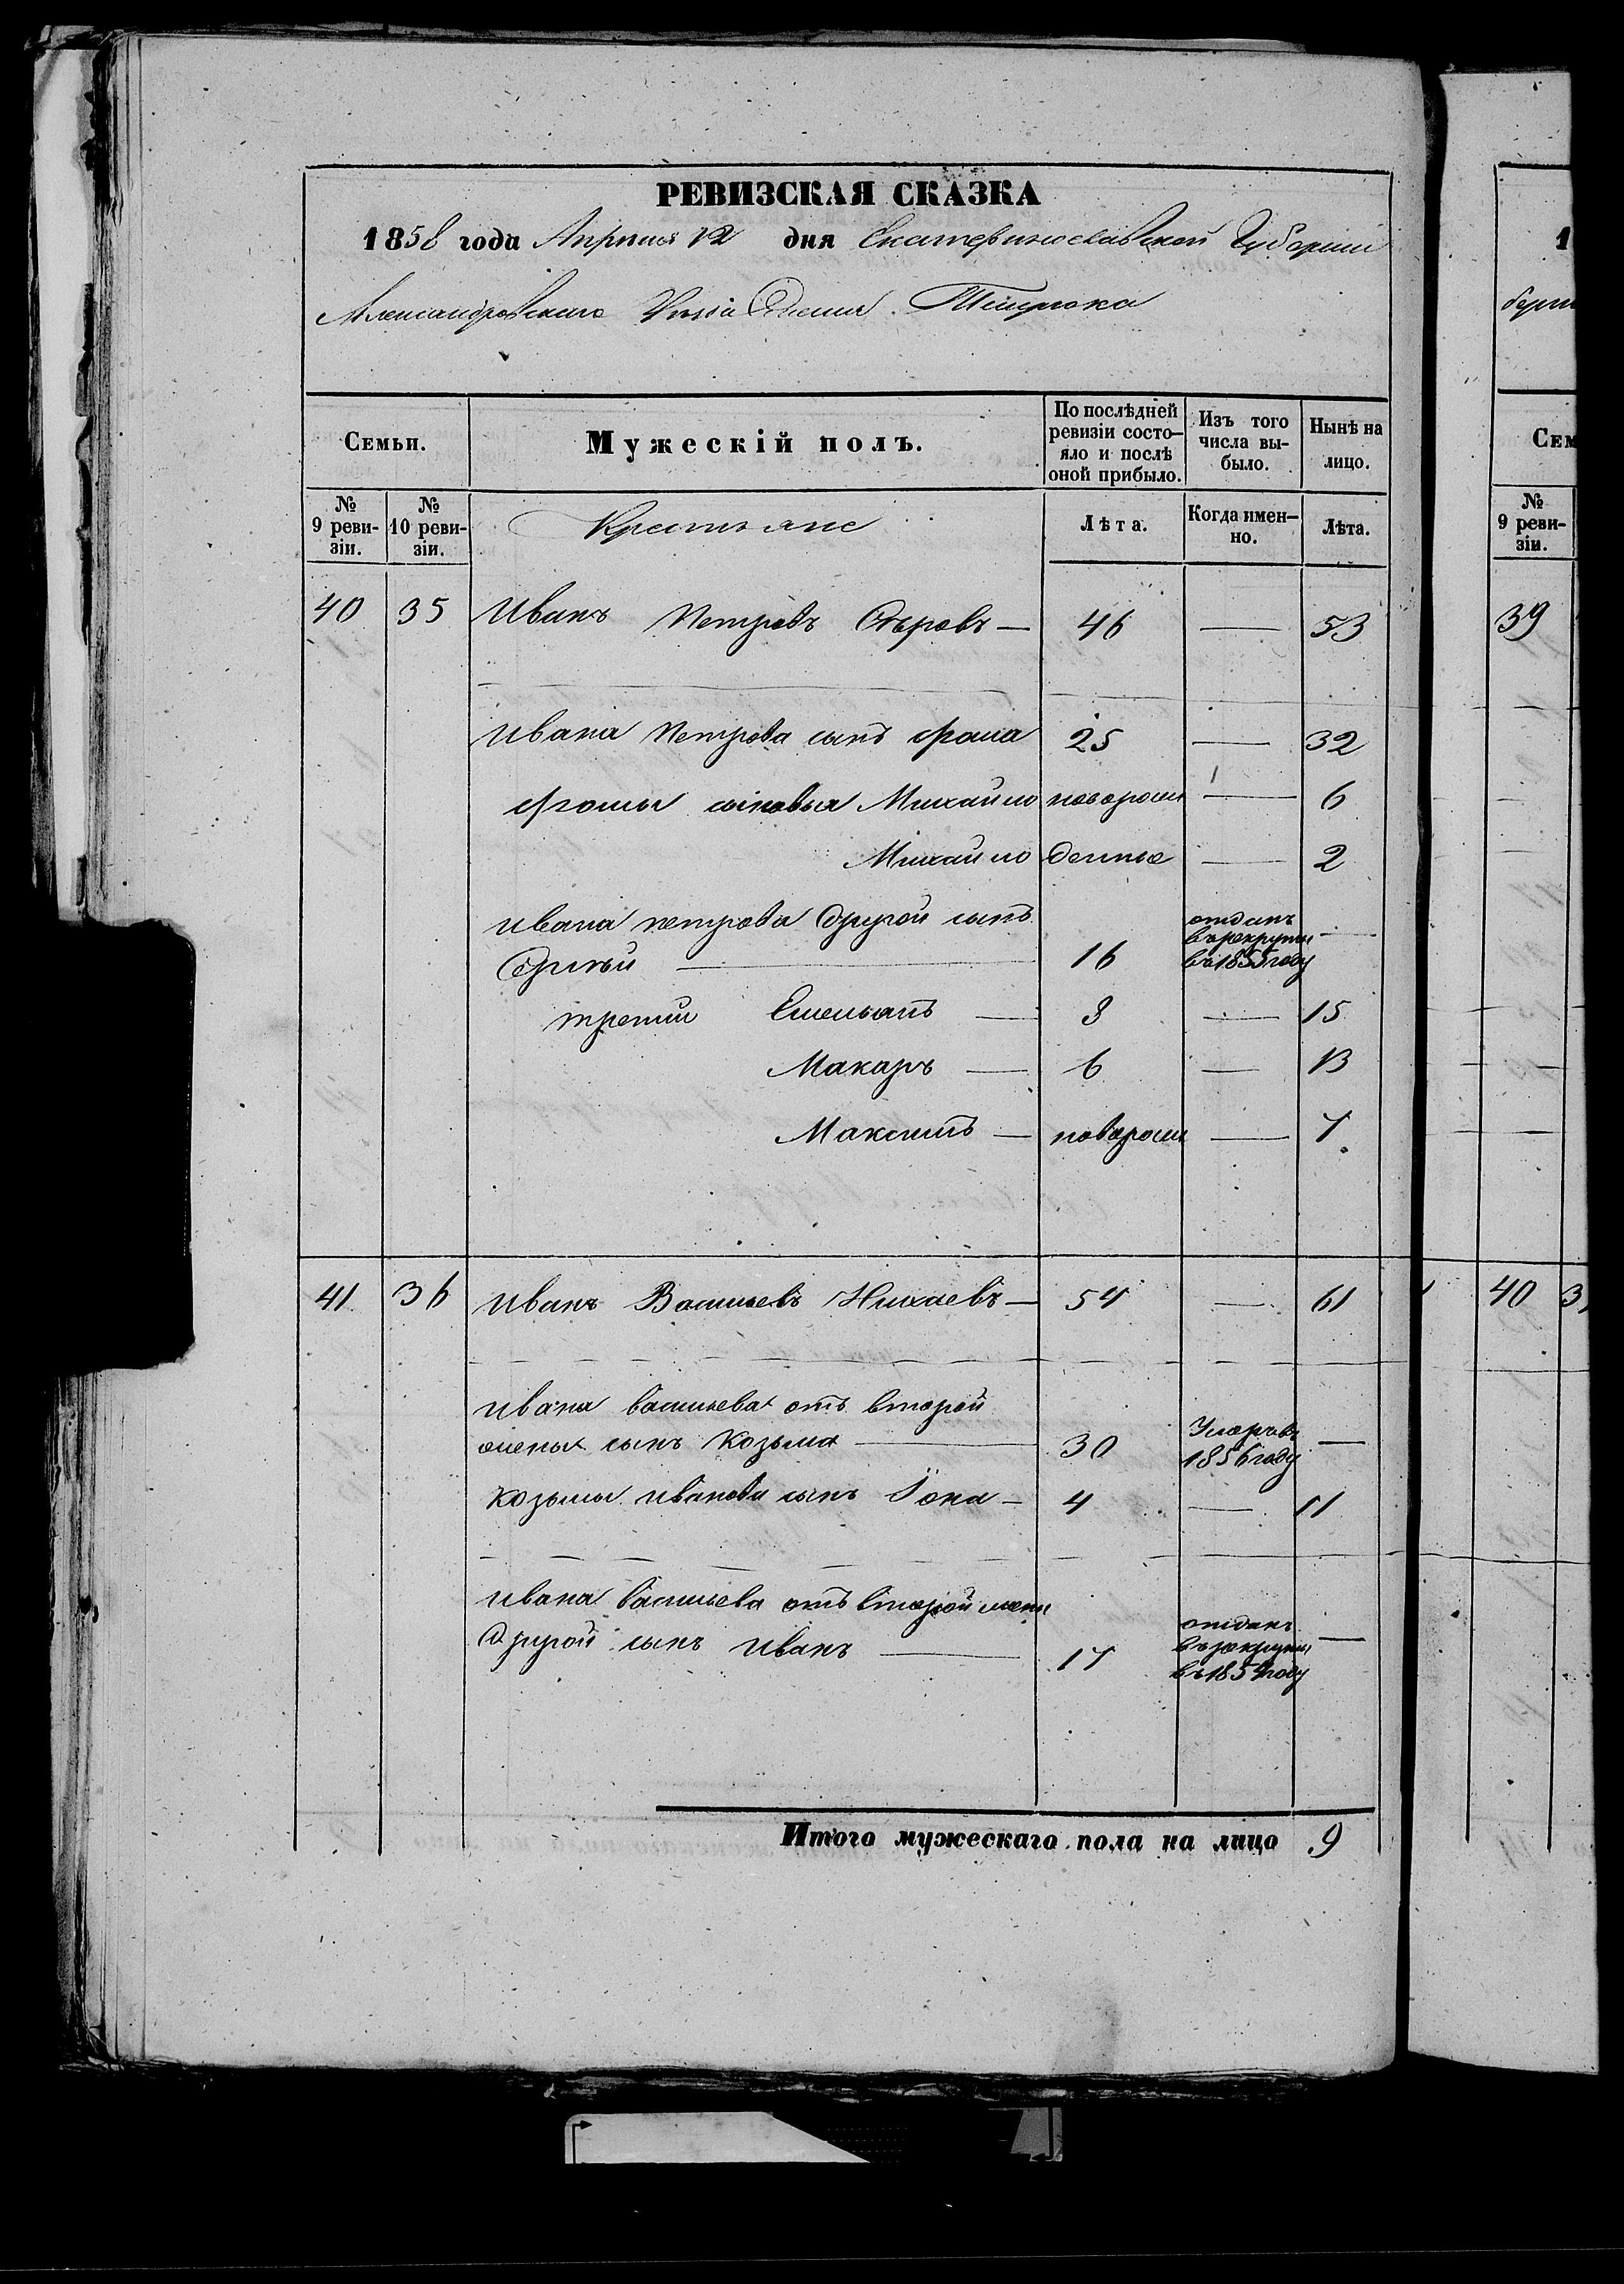 РЕВИЗСКАЯ СКАЗКА
1858 года Апреля 12 дня Екатеринославской Губернии
Александровскаго Уезда
Семьи.
Мужескій полъ.
По послѣдней ревизіи состо-яло и послѣ оной прибыло.
Изъ того числа вы-было.
Нынѣ на лицо.
№ 9 реви-зіи.
№ 10 реви-зіи.
Крестьяне
Лѣта.
Когда имен-но.
Лѣта.
40 35 Иванъ Петровъ — 46 — 53
Ивана Петрова сынъ Фома 25 — 32
Фомы сыновья Михайло новорож — 6
Михайло — 2
Ивана петрова другой сынъ
16 отданъ въ рекруты въ 1855 году —
третий Емельянъ — 8 — 15
Макаръ — 6 — 13
Максимъ — новорож — 7
41 36 Иванъ Васильевъ — 54 — 61
Ивана васильева отъ второй
жены сынъ Козьма — 30 Умеръ въ 1856 году —
Козьмы иванова сынъ Іона — 4 — 11
Ивана васильева отъ второй жены
Другой сынъ Иванъ — 17 отданъ въ рекруты въ 1854 году —
Итого мужескаго пола на лицо 9
1
Сем
№ 9 реви-зіи.
39
40 3